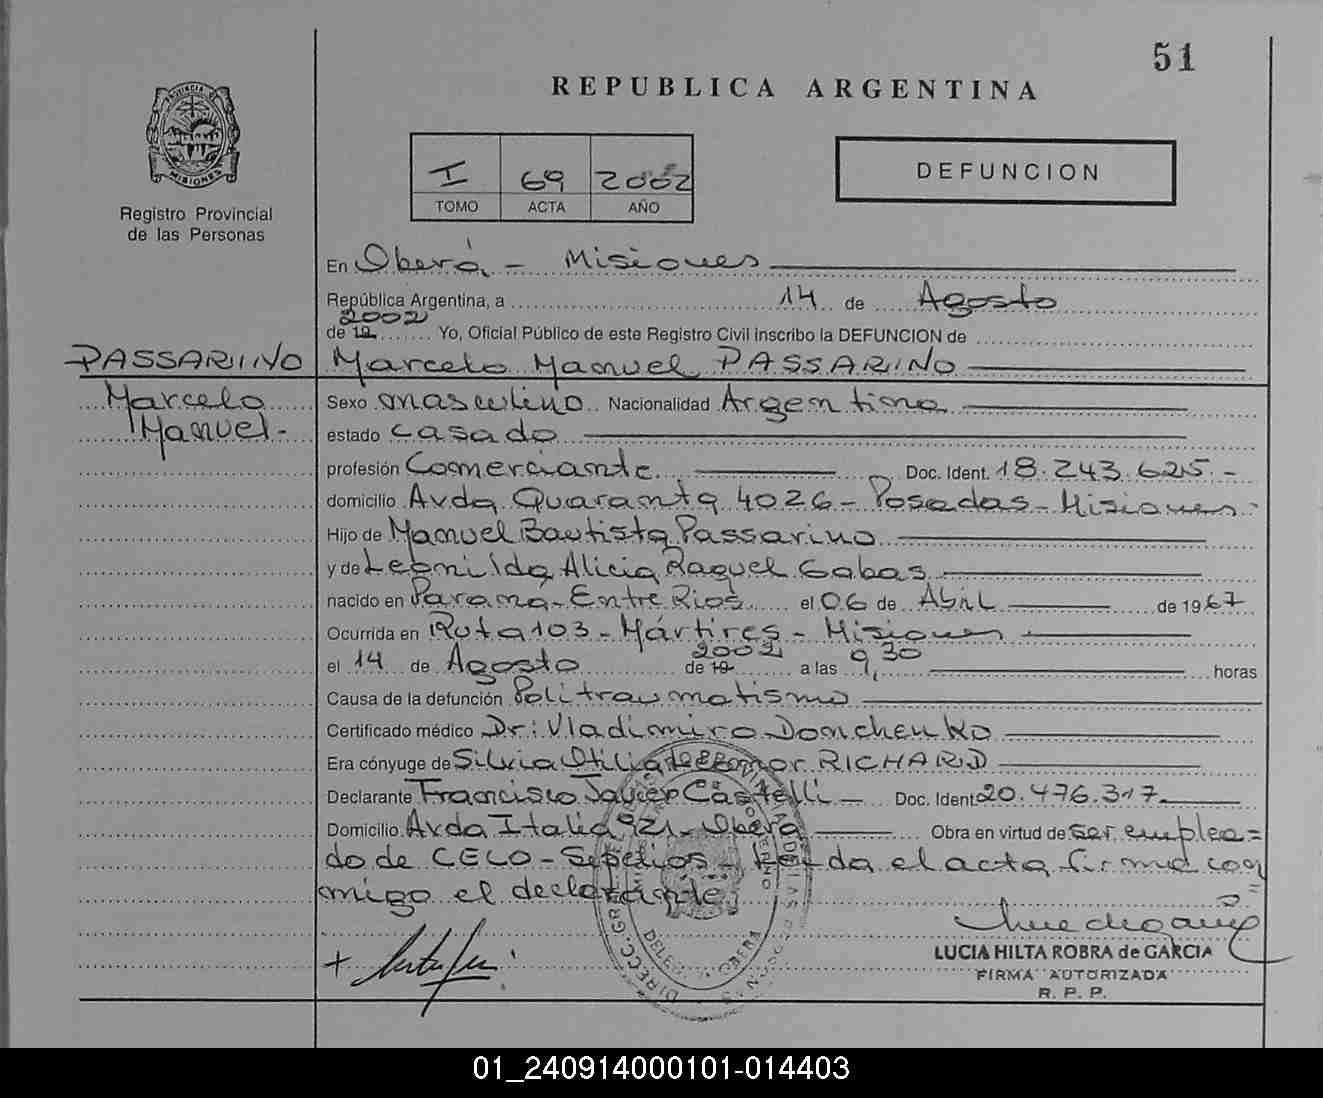 51
REPUBLICA ARGENTINA
PROVINCIA DE
MISIONES
Registro Provincial
de las Personas
I 69 2002
TOMO ACTA AÑO
DEFUNCION
En Oberá - Misiones
República Argentina, a 14 de Agosto
2002
de 19 Yo, Oficial Público de este Registro Civil inscribo la DEFUNCION de
PASSARINO Marcelo Manuel PASSARINO
Marcelo
Manuel.-
Sexo masculino Nacionalidad Argentina
estado casado
profesión Comerciante Doc. Ident. 18.243.625.-
domicilio Avda Quaranta 4026 - Posadas - Misiones.-
Hijo de Manuel Bautista Passarino
y de Leonilda Alicia Raquel Gabas
nacido en Paraná - Entre Rios el 06 de Abril de 1967
Ocurrida en Ruta 103 - Mártires - Misiones
el 14 de Agosto de 19 2002 a las 9,30 horas
Causa de la defunción Politraumatismo
Certificado médico Dr: Vladimiro Donchenko
Era cónyuge de Silvia Otilia Leonor RICHARD
Declarante Francisco Javier Castelli - Doc. Ident 20.476.317.
Domicilio Avda Italia 921 - Oberá Obra en virtud de ser emplea=
do de CELO - Sepelios - Leida el acta firma con
migo el declarante
DELEG. OBERA
LUCIA HILTA ROBRA de GARCIA
FIRMA AUTORIZADA
R. P. P.
01_240914000101-014403